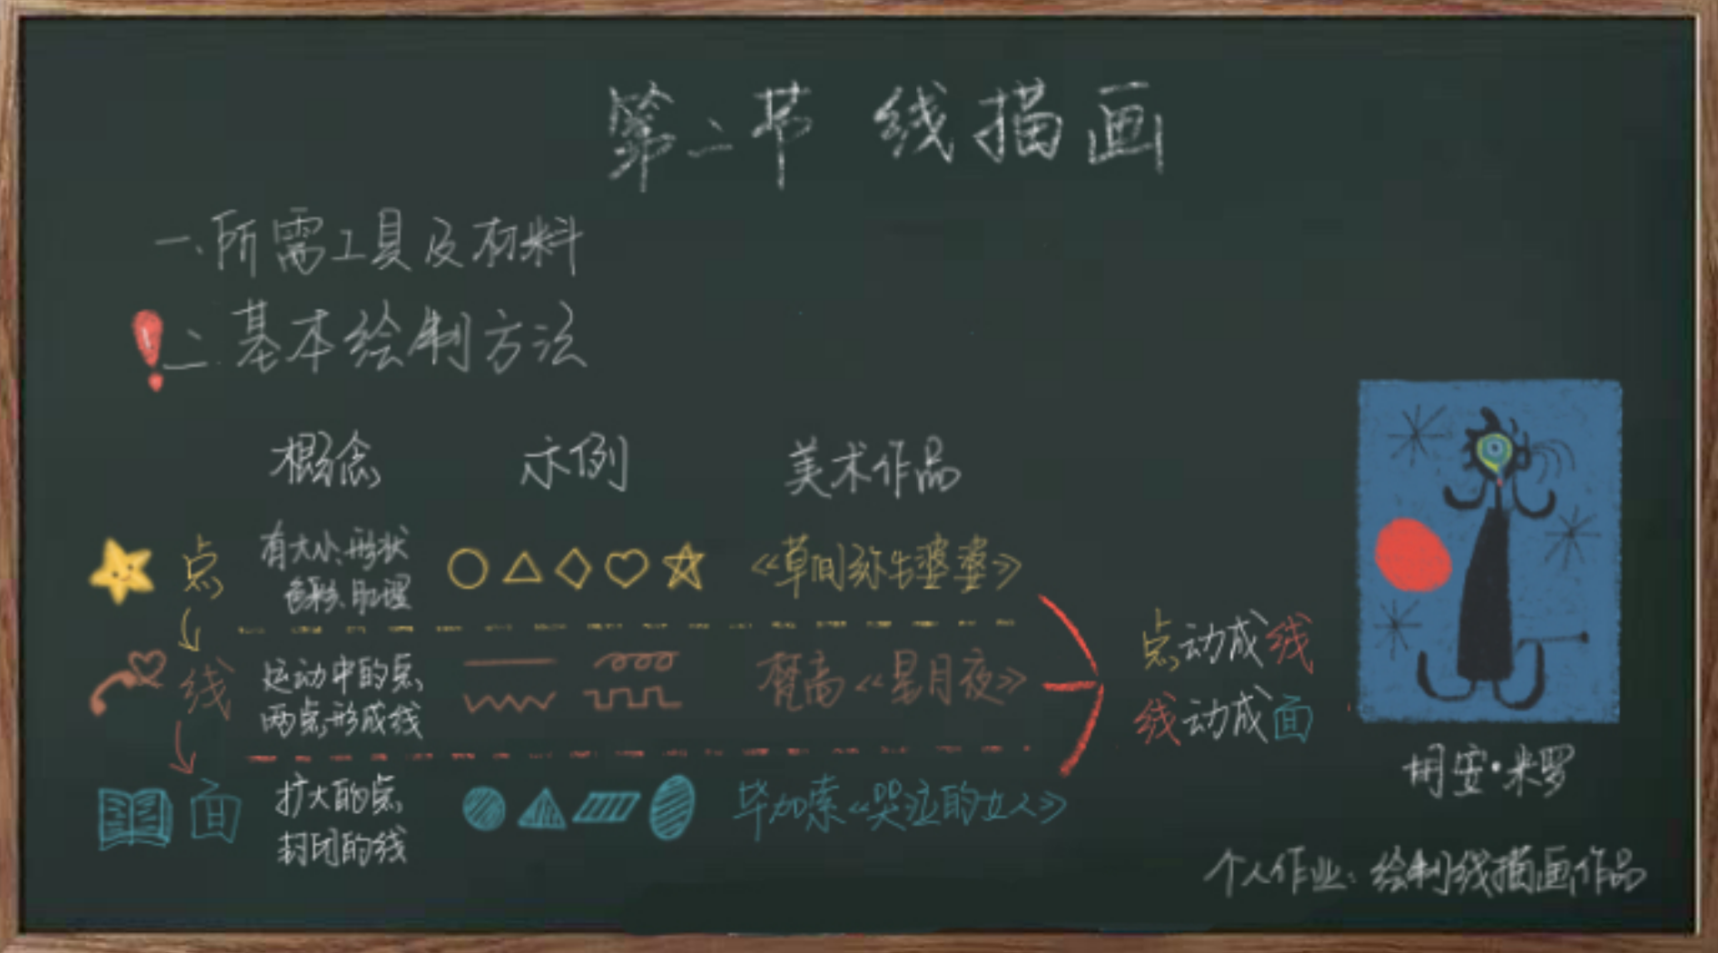 第二节 线描画
一、所需工具及材料
二、基本绘制方法
概念 示例 美术作品
点 有大小、形状 《草间弥生婆婆》
色彩、肌理
线 运动中的点, 梵高《星月夜》
两点形成线
面 扩大的点, 毕加索《哭泣的女人》
封闭的线
点动成线
线动成面
胡安·米罗
个人作业:绘制线描画作品